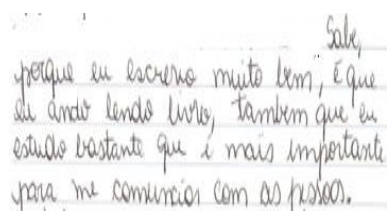 Sabe,
porque eu escrevo muito bem, é que
eu ando lendo livro, tambem que eu
estudo bastante que é mais importante
para me comunicar com as pessoas.